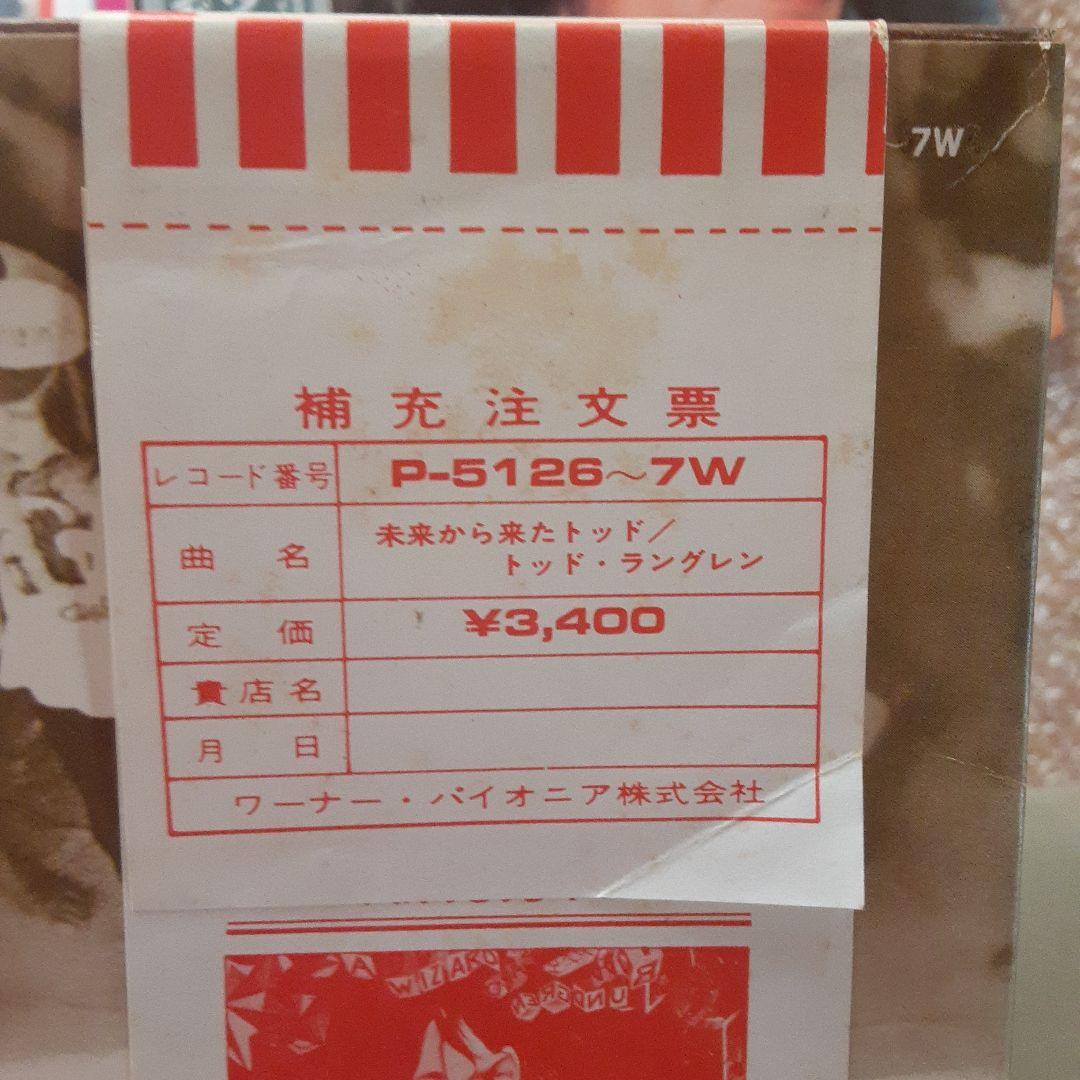 7W
補充注文票
レコード番号 P-5126～7W
曲名 未来から来たトッド／
トッド・ラングレン
定価 ¥3,400
貴店名
月日
ワーナー・パイオニア株式会社
A WIZARD